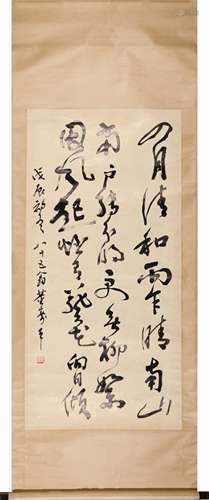 四月清和雨乍晴南山
當戶轉分明更無柳絮
因風起惟有葵花向日傾
戊辰 八十五翁董壽平